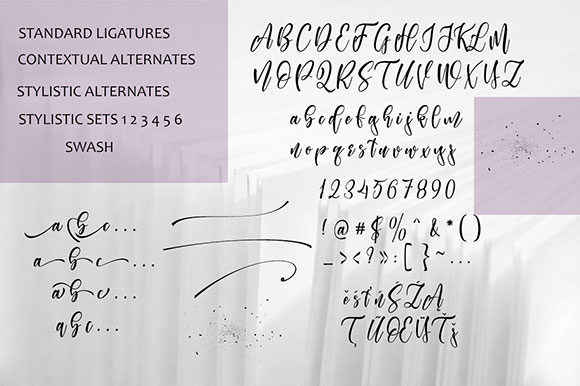 STANDARD LIGATURES
CONTEXTUAL ALTERNATES
STYLISTIC ALTERNATES
STYLISTIC SETS 1 2 3 4 5 6
SWASH
ABCDEFGHIJKLM
NOPQRSTUVWXYZ
abcdefghijklm
nopqrstuvwxyz
1234567890
! @ # $ % ^ & * ( )
_ > < ? » : [ } ~ ...
a b c ...
a b c ...
a b c ...
abc...